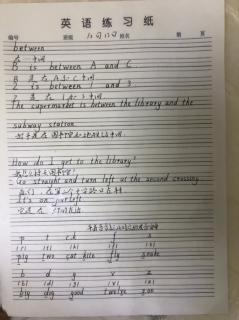 英语练习纸
编号 班级 12月12日 姓名 第 页
between
在 中间
B is between A and C
B 是在 A 和 C 中间
2 is between 1 and 3
2 是在 1 和 3 中间
The supermarket is between the library and the
subway station.
超市在图书馆和地铁站中间
How do I get to the library?
我怎么到图书馆?
Go straight and turn left at the second crossing
直行,在第二个十字路口左转
It's on your left
它就在你的左边
p t c k f s
/p/ /t/ /k/ /f/ /s/
pig two cat kite fly snake
b d g v z
/b/ /d/ /g/ /v/ /z/
big dog good twelve zoo